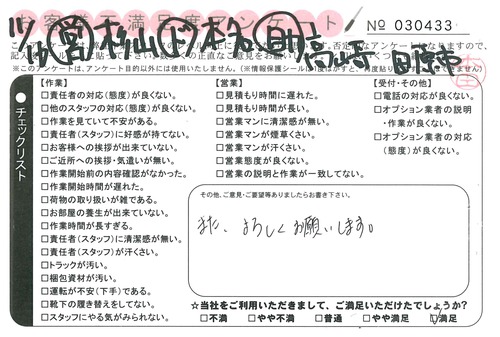 お客様満足度アンケート
No 030433
11/14 営 杉山 ド 本名 助 高山寺
チェックリスト
【作業】
□責任者の対応(態度)が良くない。
□他のスタッフの対応(態度)が良くない。
□作業を見ていて不安がある。
□責任者(スタッフ)に好感が持てない。
□お客様への挨拶が出来ていない。
□ご近所への挨拶・気遣いが無い。
□作業開始前の内容確認がなかった。
□作業開始時間が遅れた。
□荷物の取り扱いが雑である。
□お部屋の養生が出来ていない。
□作業時間が長すぎる。
□責任者(スタッフ)に清潔感が無い。
□責任者(スタッフ)が汗くさい。
□トラックが汚い。
□梱包資材が汚い。
□運転が不安(下手)である。
□靴下の履き替えをしてない。
□スタッフにやる気がみられない。
【営業】
□見積もり時間に遅れた。
□見積もり時間が長い。
□営業マンに清潔感が無い。
□営業マンが煙草くさい。
□営業マンが汗くさい。
□営業態度が良くない。
□営業の説明と作業が一致してない。
【受付・その他】
□電話の対応が良くない。
□オプション業者の説明・作業が良くない。
□オプション業者の対応(態度)が良くない。
その他、ご意見・ご要望等ありましたらお書き下さい。
また、よろしくお願いします。
☆当社をご利用いただきまして、ご満足いただけたでしょうか?
□不満 □やや不満 □普通 □やや満足 ☑満足